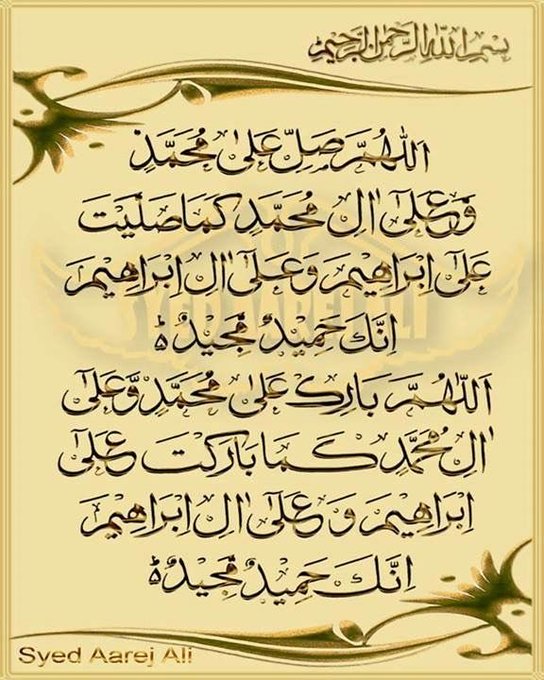 بِسْمِ اللهِ الرَّحْمٰنِ الرَّحِيْمِ
اَللّٰهُمَّ صَلِّ عَلٰى مُحَمَّدٍ
وَّعَلٰٓى اٰلِ مُحَمَّدٍ كَمَا صَلَّيْتَ
عَلٰٓى اِبْرَاهِيْمَ وَعَلٰٓى اٰلِ اِبْرَاهِيْمَ
اِنَّكَ حَمِيْدٌ مَّجِيْدٌ ة
اَللّٰهُمَّ بَارِكْ عَلٰى مُحَمَّدٍ وَّعَلٰٓى
اٰلِ مُحَمَّدٍ كَمَا بَارَكْتَ عَلٰٓى
اِبْرَاهِيْمَ وَعَلٰٓى اٰلِ اِبْرَاهِيْمَ
اِنَّكَ حَمِيْدٌ مَّجِيْدٌ ة
SYED AAREJ ALI
Syed Aarej Ali